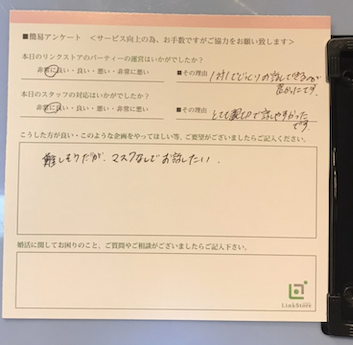 ■簡易アンケート ＜サービス向上の為、お手数ですがご協力をお願い致します＞
本日のリンクストアのパーティーの運営はいかがでしたか？
非常に良い・良い・悪い・非常に悪い ■その理由 1対1でじっくりお話しできるのが
良かったです。
本日のスタッフの対応はいかがでしたか？
非常に良い・良い・悪い・非常に悪い ■その理由 とても親切で話しやすかった
です。
こうした方が良い・このような企画をやってほしい等、ご要望がございましたらご記入ください。
難しそうだが、マスクなしでお話したい。
婚活に関してお困りのこと、ご質問やご相談がございましたらご記入下さい。
LinkStore